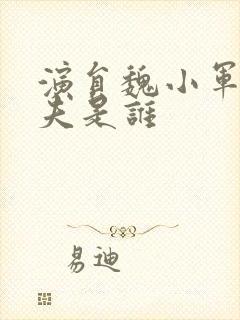 演員魏小軍
夫是誰
易迪